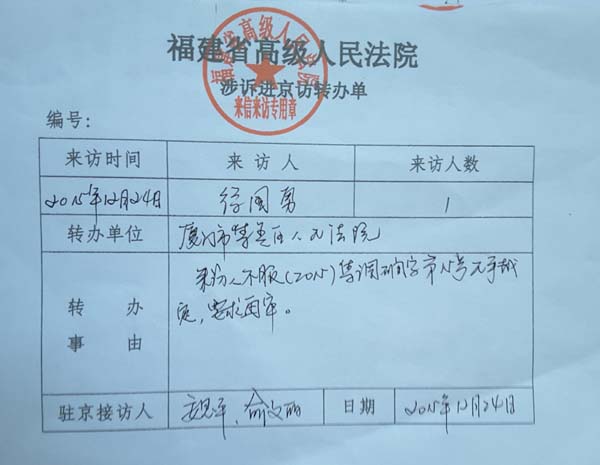 福建省高级人民法院
涉诉进京访转办单
来信来访专用章
编号:
来访时间 来访人 来访人数
2015年12月24日 徐国勇 1
转办单位 厦门市集美区人民法院
转办事由 来访人不服(2015)集调确字第15号民事裁
定,要求再审。
驻京接访人 俞文丽 日期 2015年12月24日